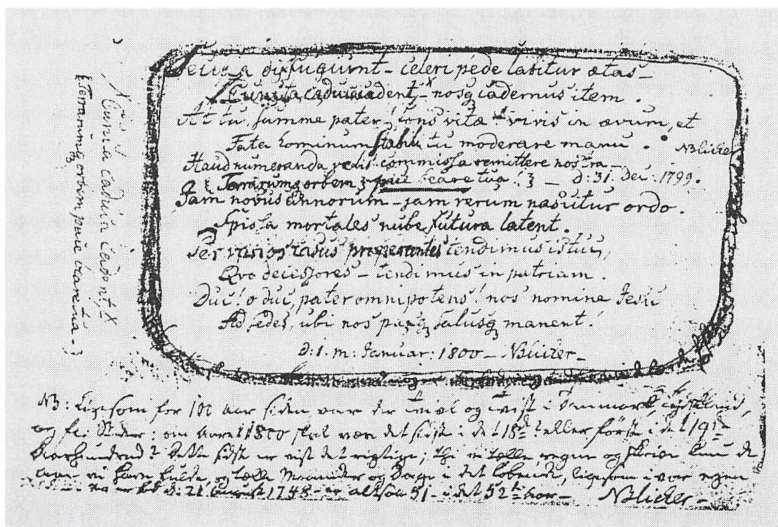 Secula diffugiunt – celeri pede labitur ætas –
Cuncta caduca cadent, nosq cademus item.
At tu, summe pater! fons vitæ vivis in ævum, et
Fata hominum stabili tu moderare manu. NBlicher
Haud numeranda velis commissa remittere nostra –
{Terrarumq orbem pace beare tua!} – d: 31 Dec: 1799.
Jam novus annorum – jam rerum nascitur ordo.
Spissa mortales nube futura latent.
Per varios casus properantes tendimus istuc,
Qvo decessores – tendimus in patriam.
Duc! o duc, pater omnipotens! nos nomine Jesu
Ad sedes, ubi nos paxq salusq manent!
d: 1. m: Januar: 1800 – NBlicher –
Cuncta caduca cadent,
{Terrarumq orbem pace beare tua –}
NB: Ligesom for 100 Aar siden var der tvivl og tvist i Danmark,
og fl: Stæder: om Aaret 1800 skal være det sidste i det 18de eller første i det 19de
Aarhundred? Dette sidst er vist det rigtige; thi vi
og Dage i det løbende, ligesom i vor egen
d: 21 August 1748 – er altsaa 51 – i det 52de Aar – NBlicher –